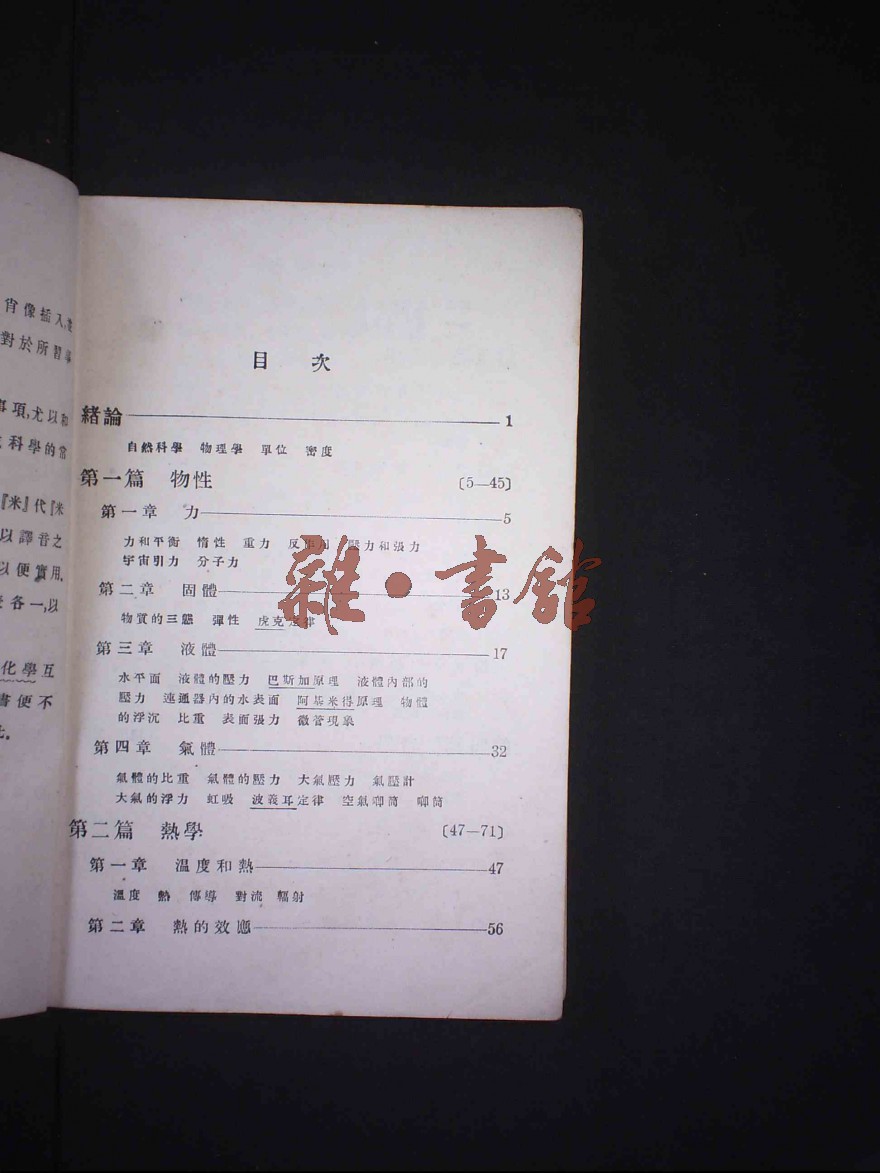 肖像插入,
對於所習
事項,尤以和
科學的常
『米』代『米
以譯音之
以便實用.
各一,以
化學互
書便不
目 次
緒論 1
自然科學 物理學 單位 密度
第一篇 物性 〔5—45〕
第一章 力 5
力和平衡 惰性 重力 反作用 壓力和張力
宇宙引力 分子力
第二章 固體 13
物質的三態 彈性 虎克定律
第三章 液體 17
水平面 液體的壓力 巴斯加原理 液體內部的
壓力 連通器內的水表面 阿基米得原理 物體
的浮沉 比重 表面張力 微管現象
第四章 氣體 32
氣體的比重 氣體的壓力 大氣壓力 氣壓計
大氣的浮力 虹吸 波義耳定律 空氣唧筒 唧筒
第二篇 熱學 〔47—71〕
第一章 溫度和熱 47
溫度 熱 傳導 對流 輻射
第二章 熱的效應 56
雜·書館